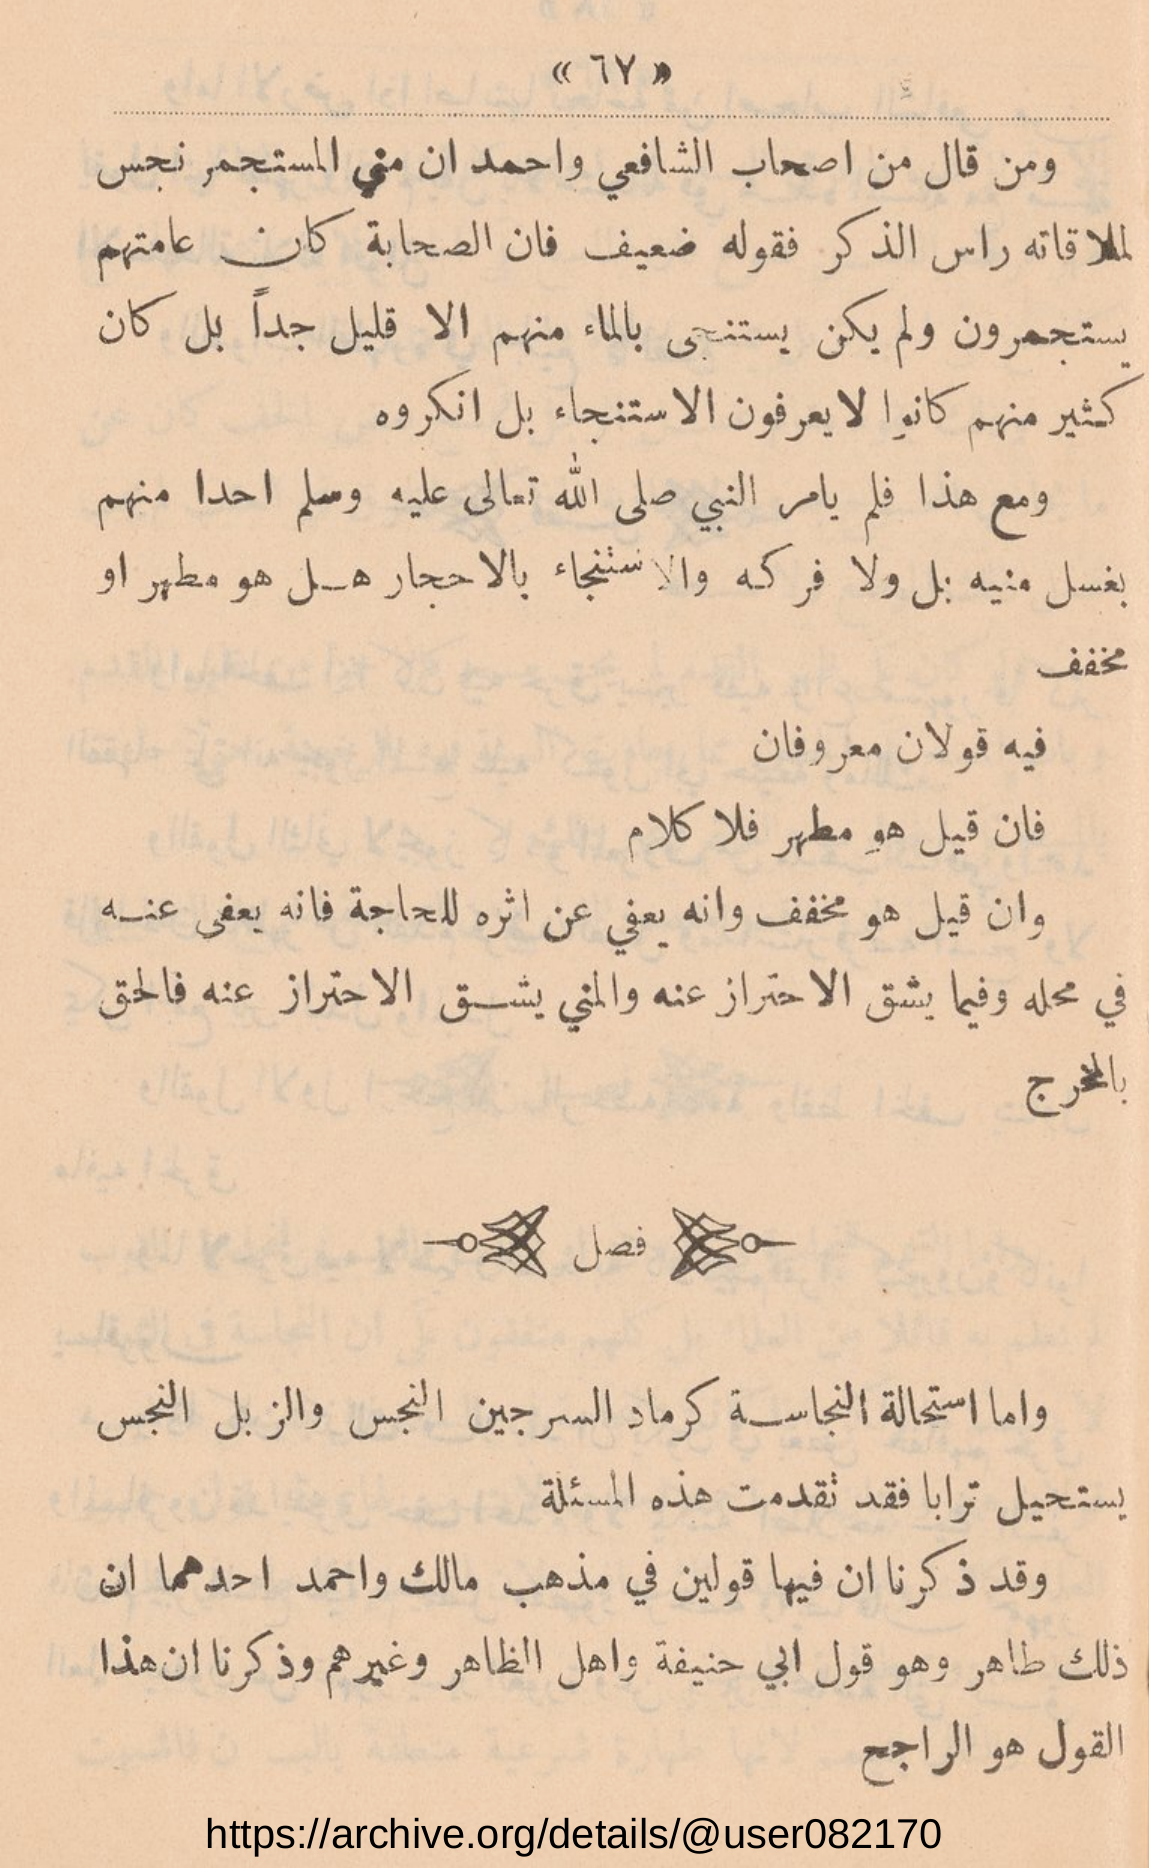 « ٦٧ »
ومن قال من اصحاب الشافعي واحمد ان مني المستجمر نجس
لملاقاته راس الذكر فقوله ضعيف فان الصحابة كان عامتهم
يستجمرون ولم يكن يستنجى بالماء منهم الا قليل جداً بل كان
كثير منهم كانوا لا يعرفون الاستنجاء بل انكروه
ومع هذا فلم يامر النبي صلى الله تعالى عليه وسلم احدا منهم
بغسل منيه بل ولا فركه والاستنجاء بالاحجار هل هو مطهر او
مخفف
فيه قولان معروفان
فان قيل هو مطهر فلا كلام
وان قيل هو مخفف وانه يعفي عن اثره للحاجة فانه يعفى عنه
في محله وفيما يشق الاحتراز عنه والمني يشق الاحتراز عنه فالحق
بالمخرج
فصل
واما استحالة النجاسة كرماد السرجين النجس والزبل النجس
يستحيل ترابا فقد تقدمت هذه المسئلة
وقد ذكرنا ان فيها قولين في مذهب مالك واحمد احدهما ان
ذلك طاهر وهو قول ابي حنيفة واهل الظاهر وغيرهم وذكرنا ان هذا
القول هو الراجح
https://archive.org/details/@user082170